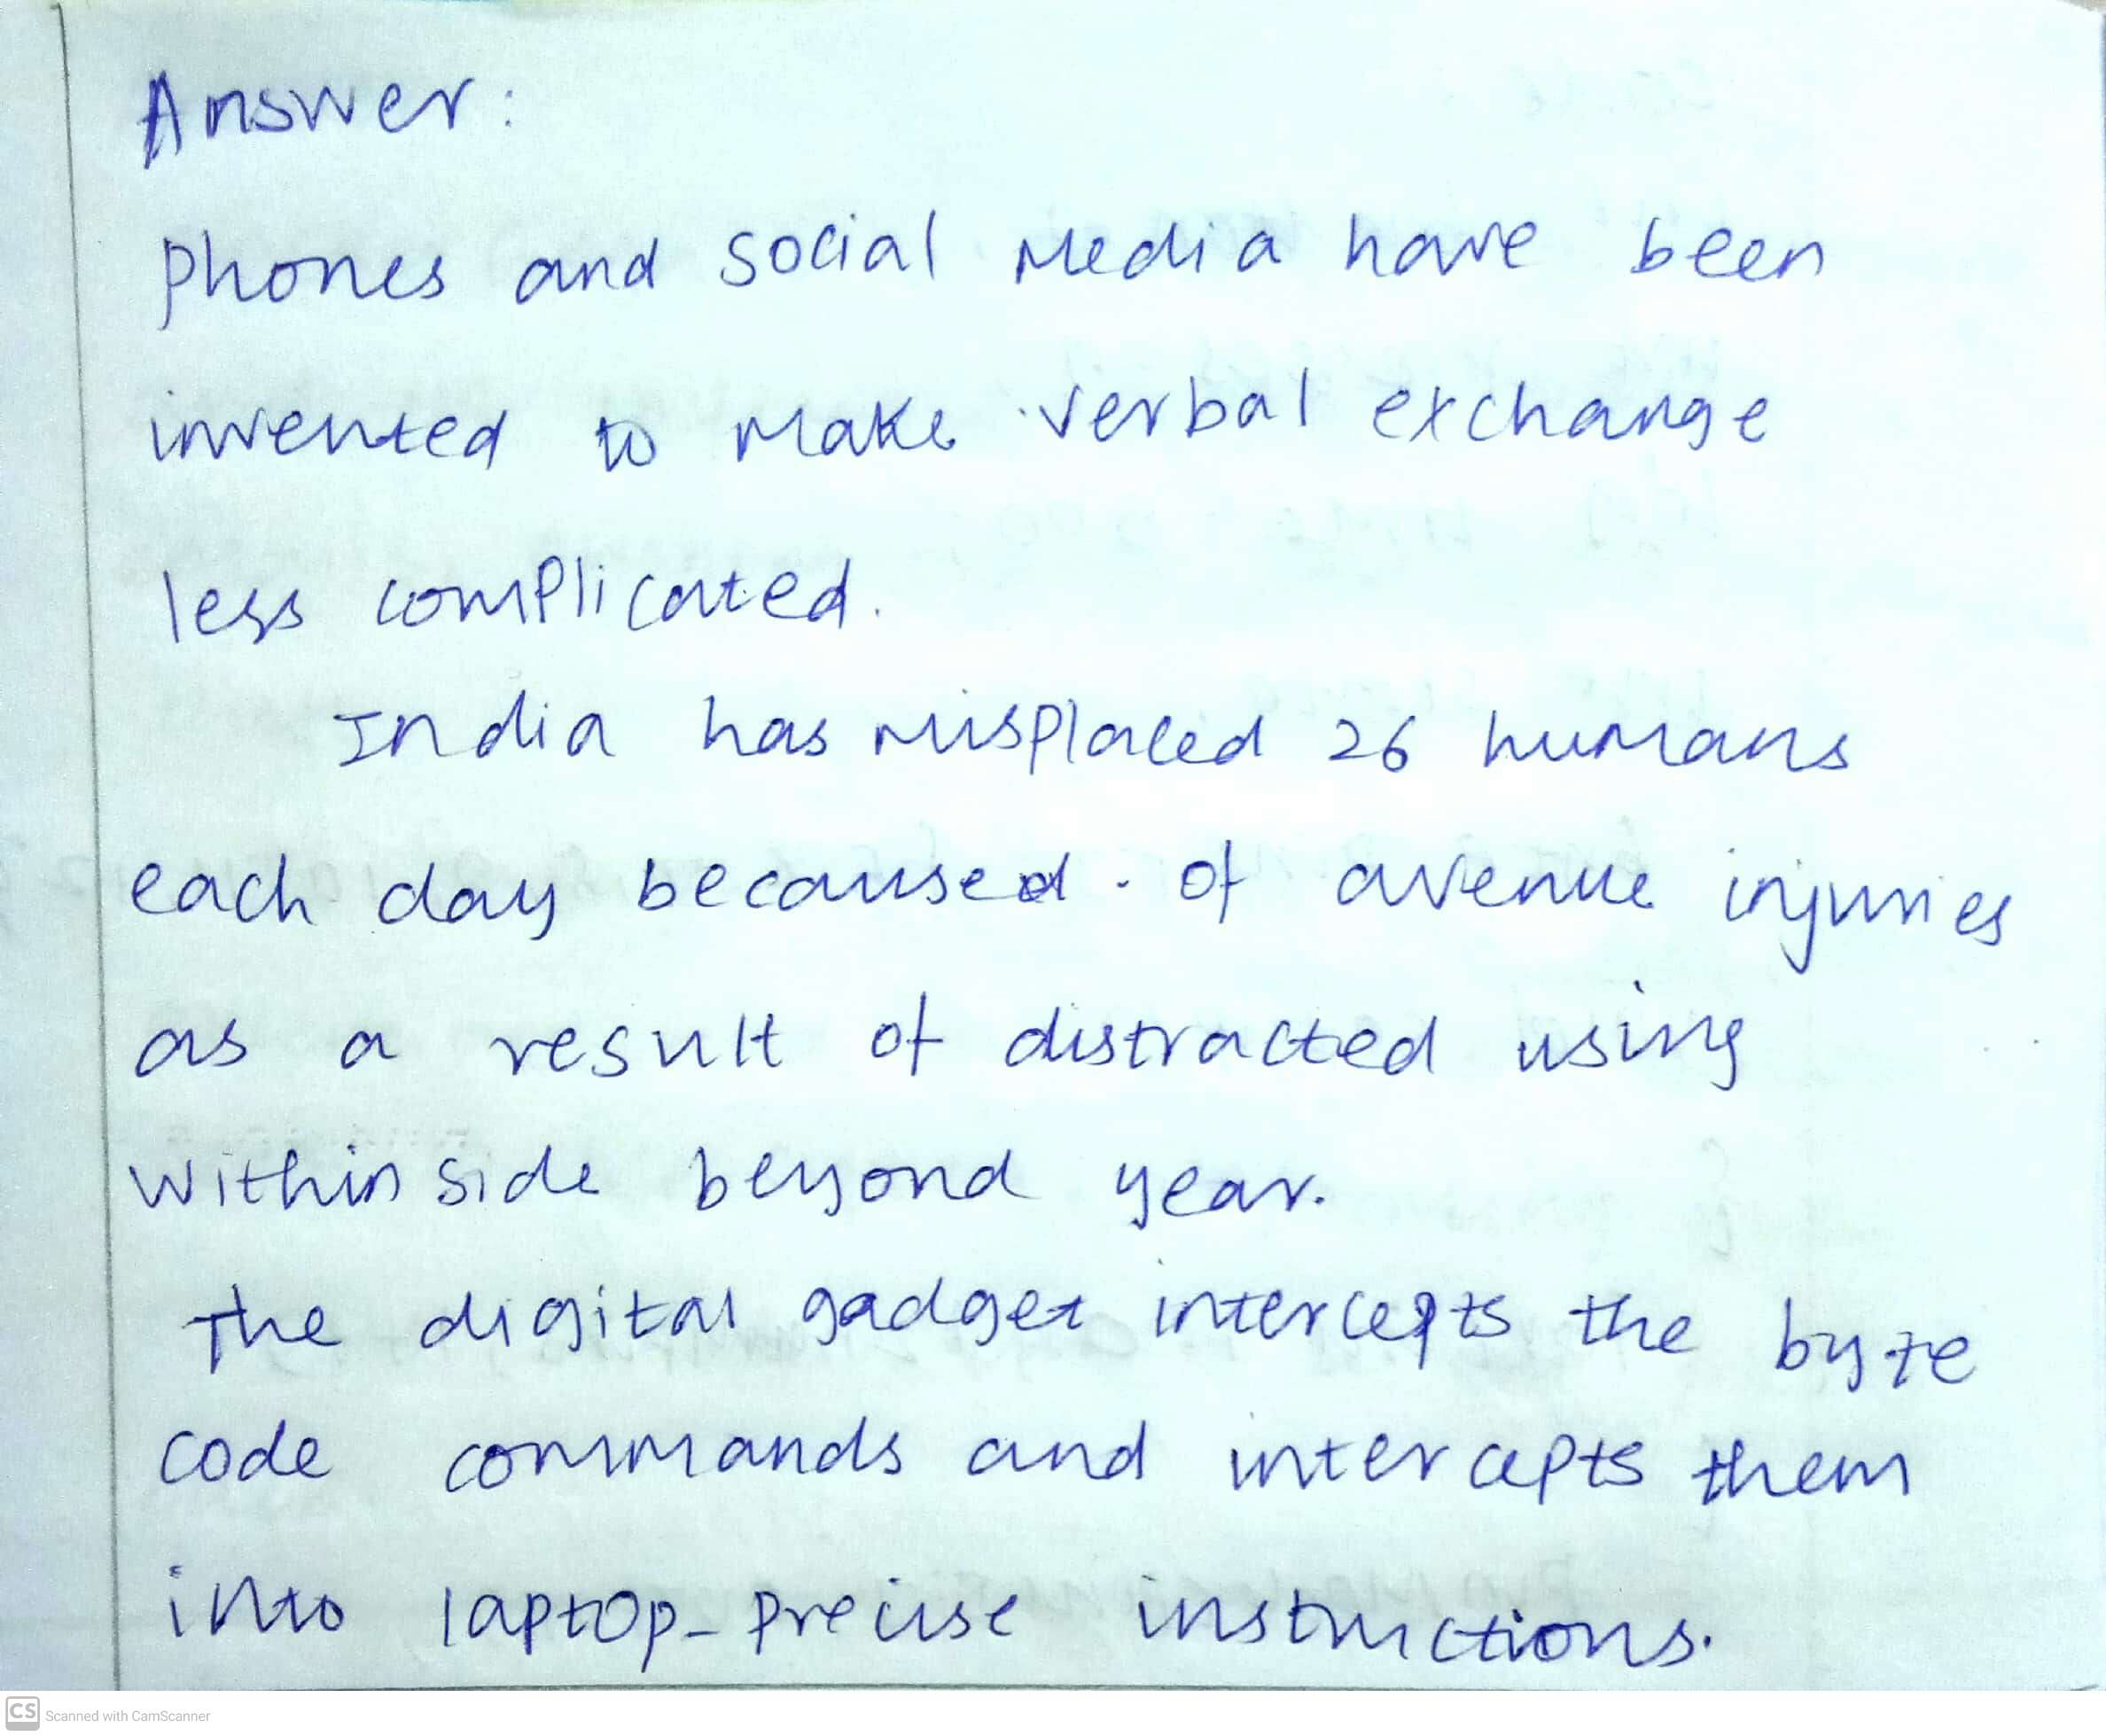 Answer:
Phones and social Media have been
invented to Make verbal exchange
less complicated.
India has misplaced 26 humans
each day becaused of avenue injuries
as a result of distracted using
within side beyond year.
The digital gadget intercepts the byte
code commands and intercepts them
into laptop-precise instructions.
CS Scanned with CamScanner